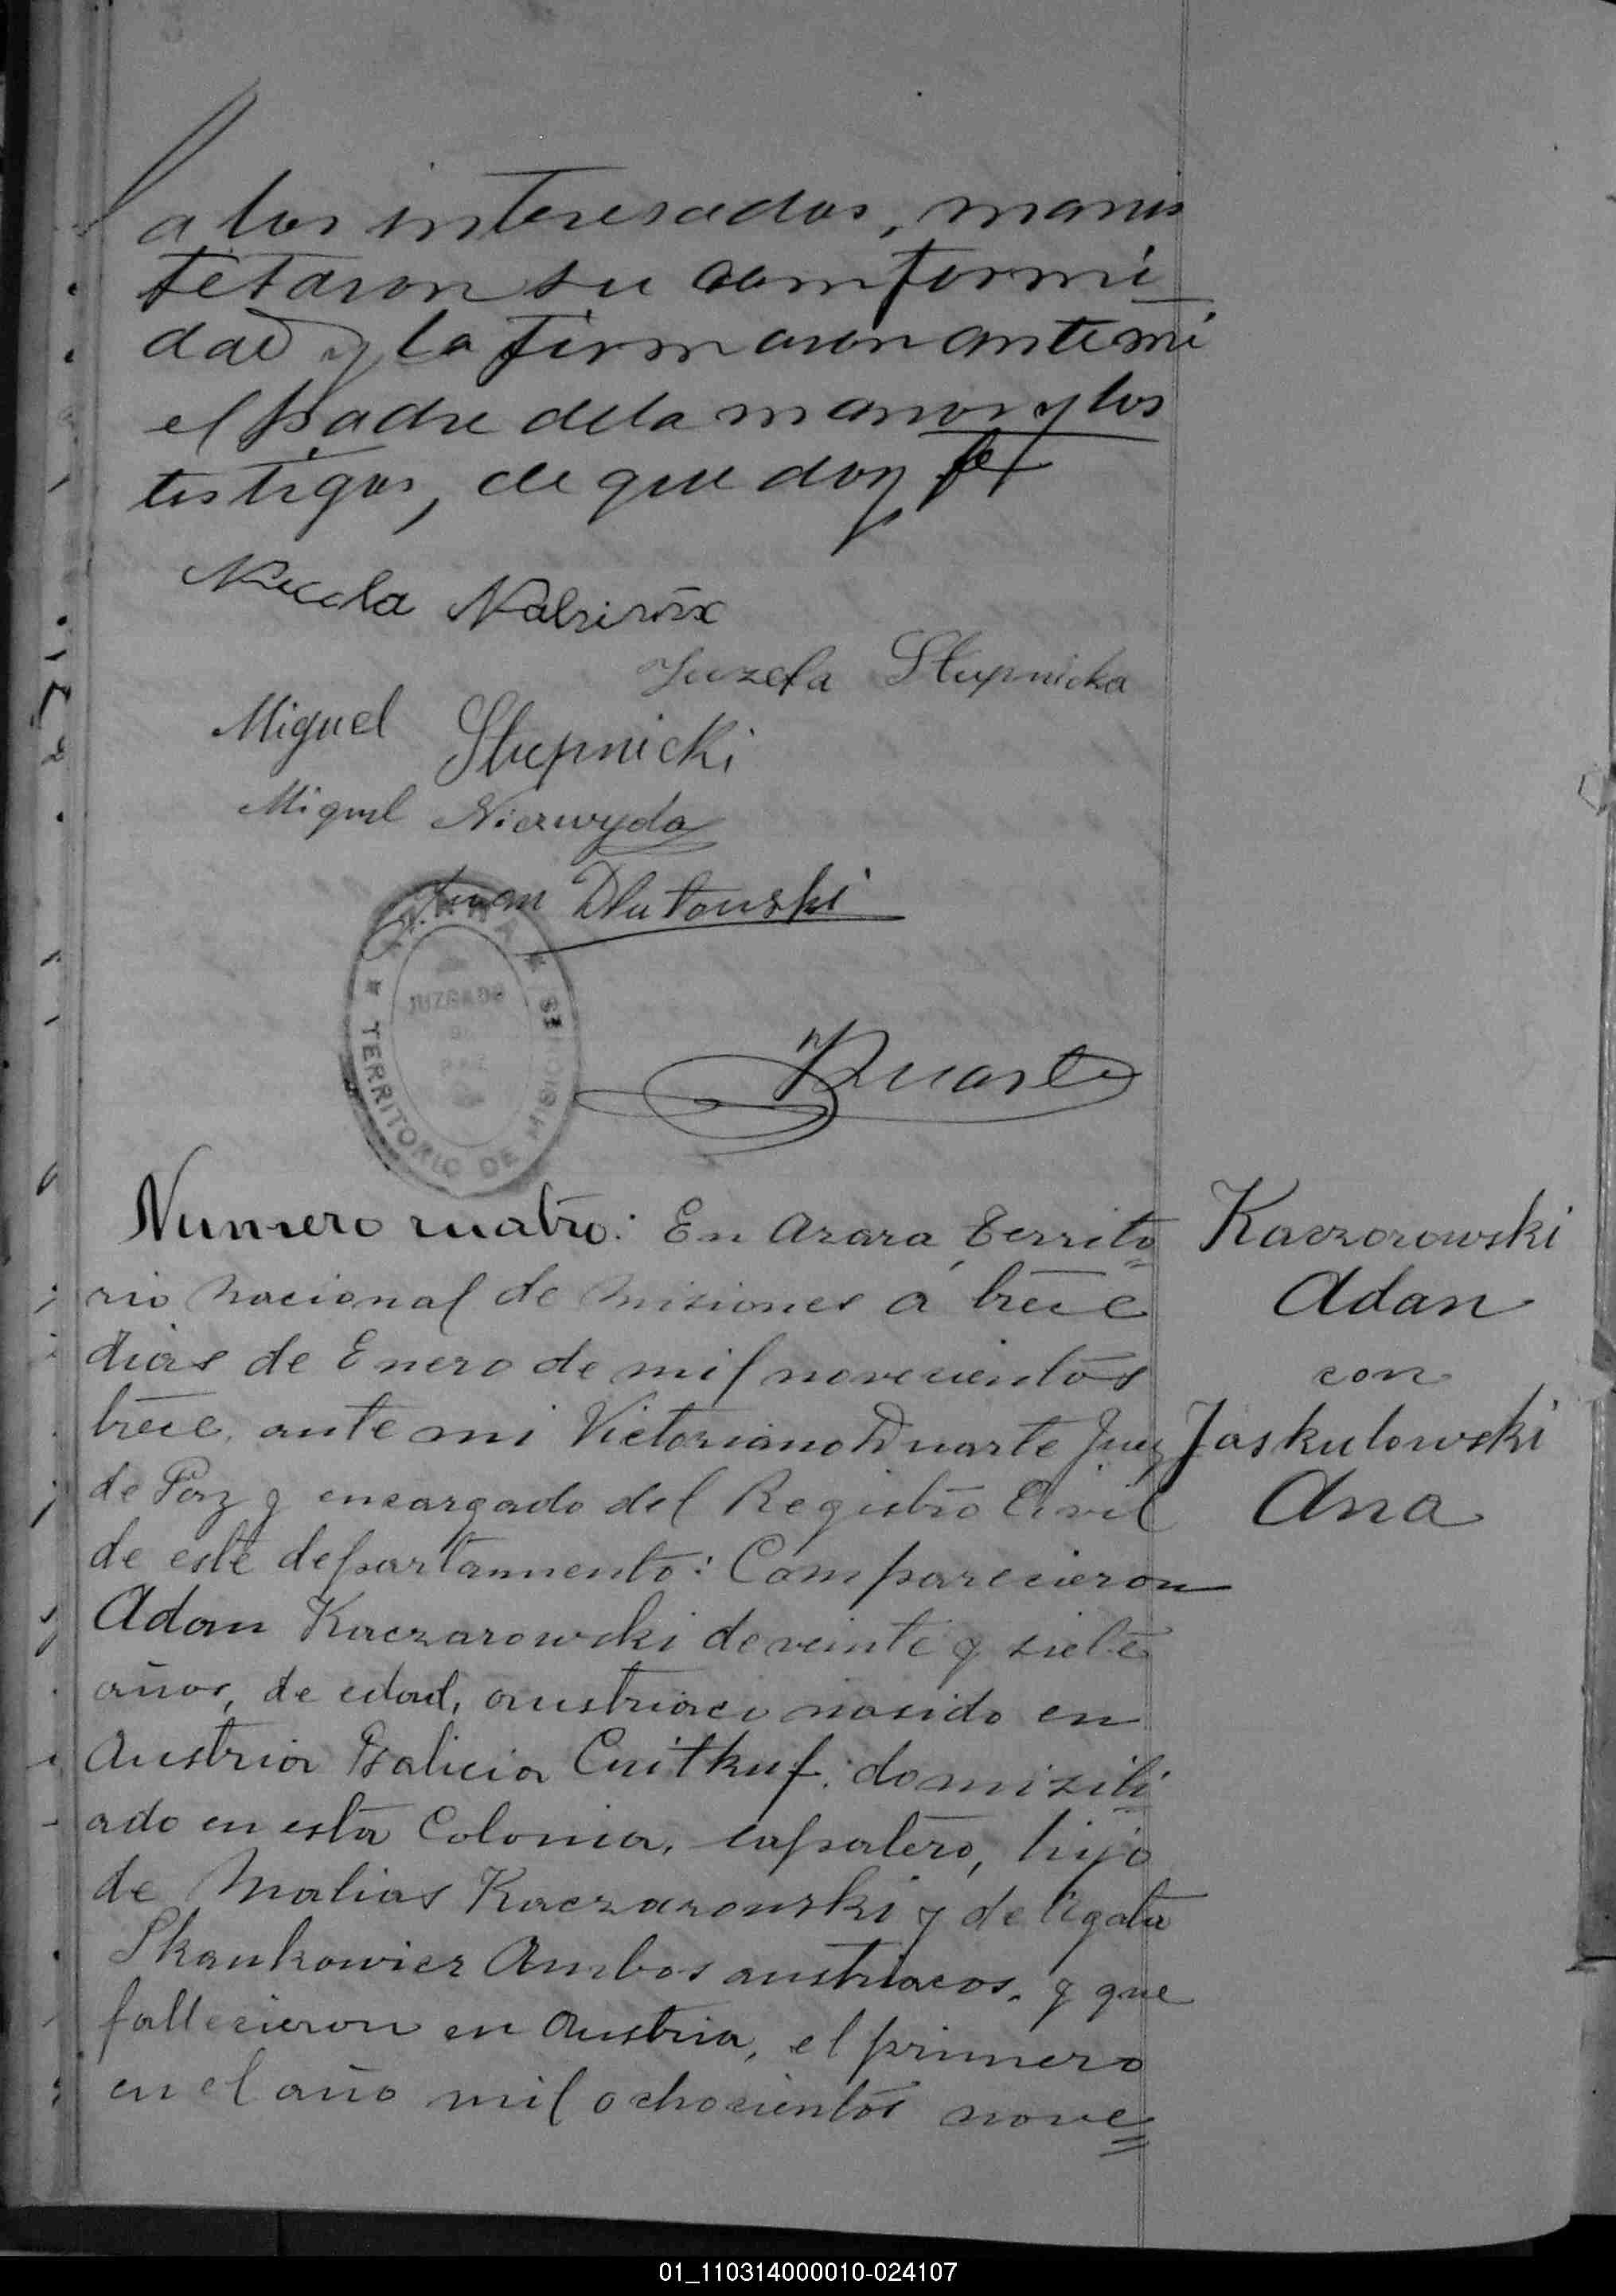 a los interesados, manis
tetaron su comformi
dad y la firmaron ante mi
el padre dela manor y los
testigos, de que doy fe
Miguel Slupnicki
Juzefa Slupnicka
Miguel Nierwyda
Juan Dlutowski
JUZGADO
DE
PAZ
TERRITORIO DE MISIONES
VDuarte
Numero cuatro: En Azara, Territo
rio Nacional de Misiones a trece
dias de Enero de mil novecientos
trece, ante mi Victoriano Duarte Juez
de Paz y encargado del Registro Civil
de este departamento: Comparecieron
Adan Kaczarowski de veinte y siete
años, de edad, austriaco nasido en
Austria Galicia Cuitkuf: domizili
ado en esta Colonia, sapatero, hijo
de Matias Kaczarowski y de Agata
Skankowicz Ambos austriacos, y que
fallecieron en Austria, el primero
en el año mil ochocientos nove
Kaczorowski
Adan
con
Jaskulowski
Ana
01_110314000010-024107